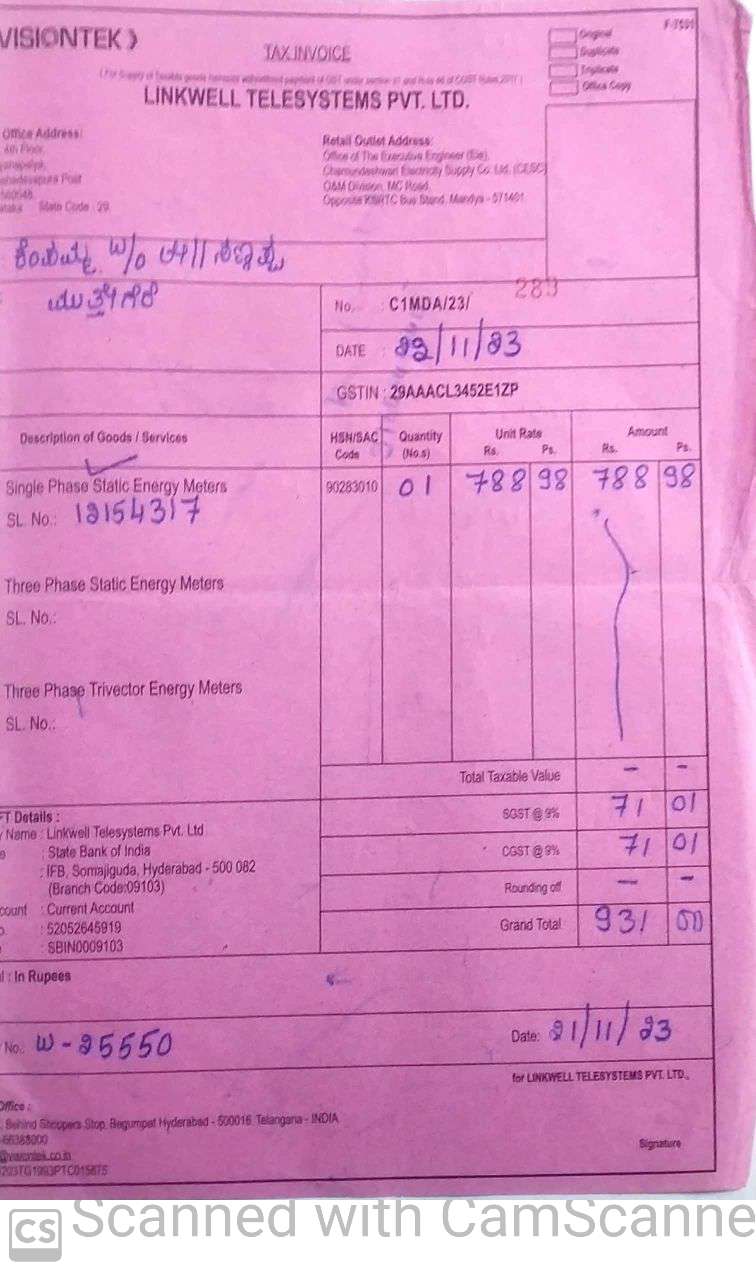 VISIONTEK
F-7501
TAX INVOICE
Original
Duplicate
Triplicate
Office Copy
LINKWELL TELESYSTEMS PVT. LTD.
Office Address:
4th Floor,
Post
560048
State Code : 29
Retail Outlet Address:
Office of The Executive Engineer (Ele),
Chamundeshwari Electricity Supply Co. Ltd. (CESC)
O&M Division, MC Road,
Opposite KSRTC Bus Stand, Mandya - 571401
W/o
No. : C1MDA/23/ 289
DATE : 22/11/23
GSTIN : 29AAACL3452E1ZP
Description of Goods / Services HSN/SAC Code Quantity (No.s) Unit Rate Rs. Ps. Amount Rs. Ps.
Single Phase Static Energy Meters 90283010 01 788 98 788 98
SL. No.: 12154317
Three Phase Static Energy Meters
SL. No.:
Three Phase Trivector Energy Meters
SL. No.:
Total Taxable Value - -
SGST @ 9% 71 01
CGST @ 9% 71 01
Rounding off - -
Grand Total 931 00
FT Details :
Name : Linkwell Telesystems Pvt. Ltd
: State Bank of India
: IFB, Somajiguda, Hyderabad - 500 082
(Branch Code:09103)
count : Current Account
: 52052645919
: SBIN0009103
: In Rupees
No.: W-25550
Date: 21/11/23
for LINKWELL TELESYSTEMS PVT. LTD.,
Office :
Behind Shoppers Stop, Begumpet Hyderabad - 500016. Telangana - INDIA
66388000
@visiontek.co.in
Signature
CS Scanned with CamScanne